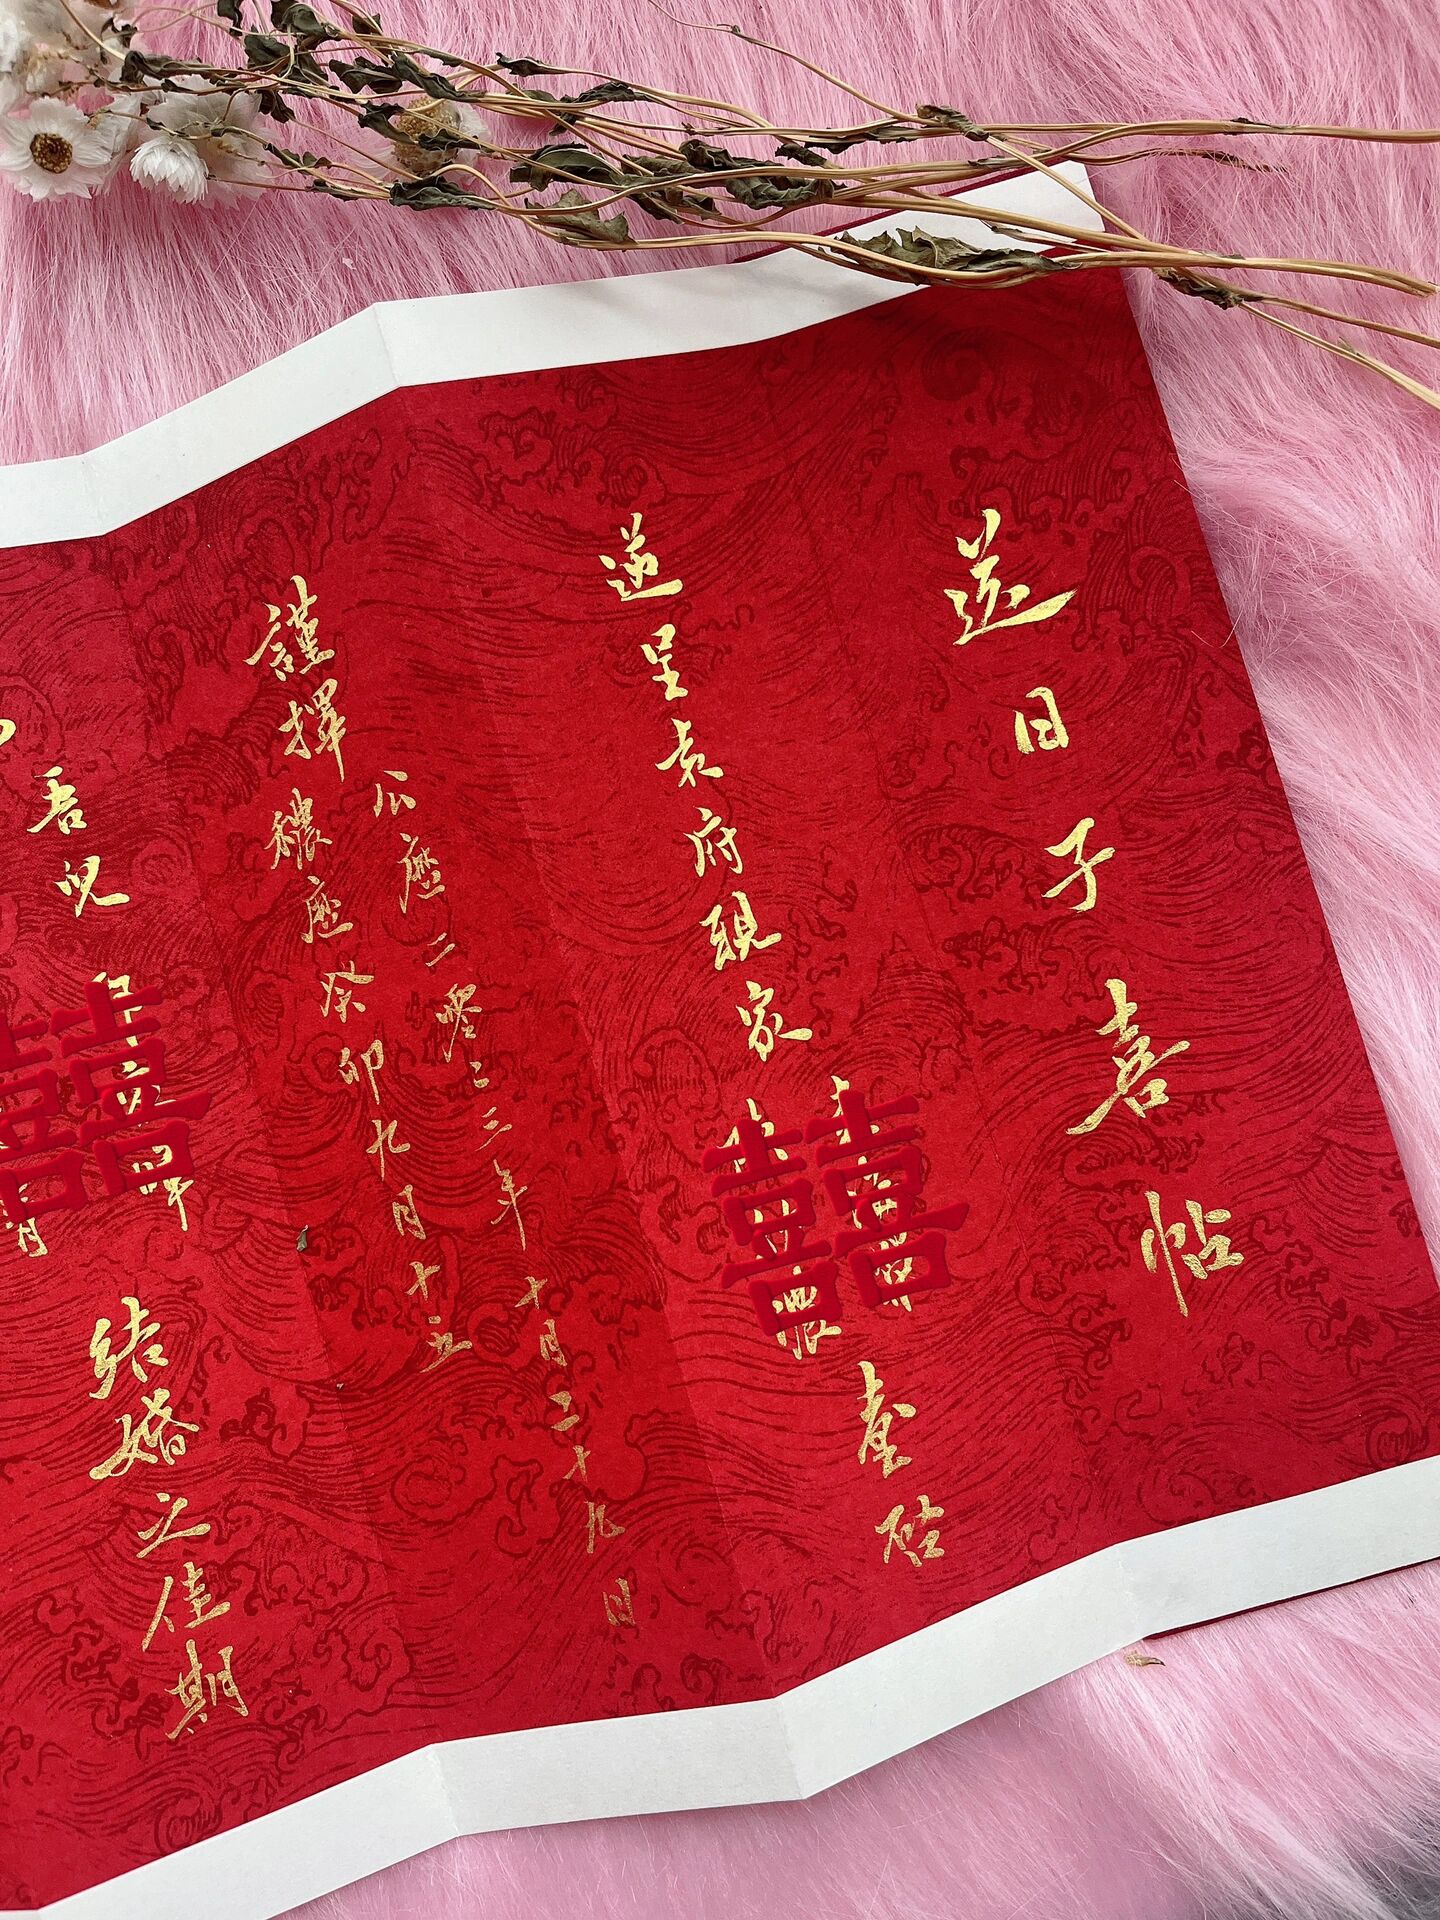 送日子喜帖
递呈袁府親家
臺啓
公歷二零二三年十月二十九日
謹擇
穠歷癸卯九月十五
吾兒
結婚之佳期
月
囍
囍